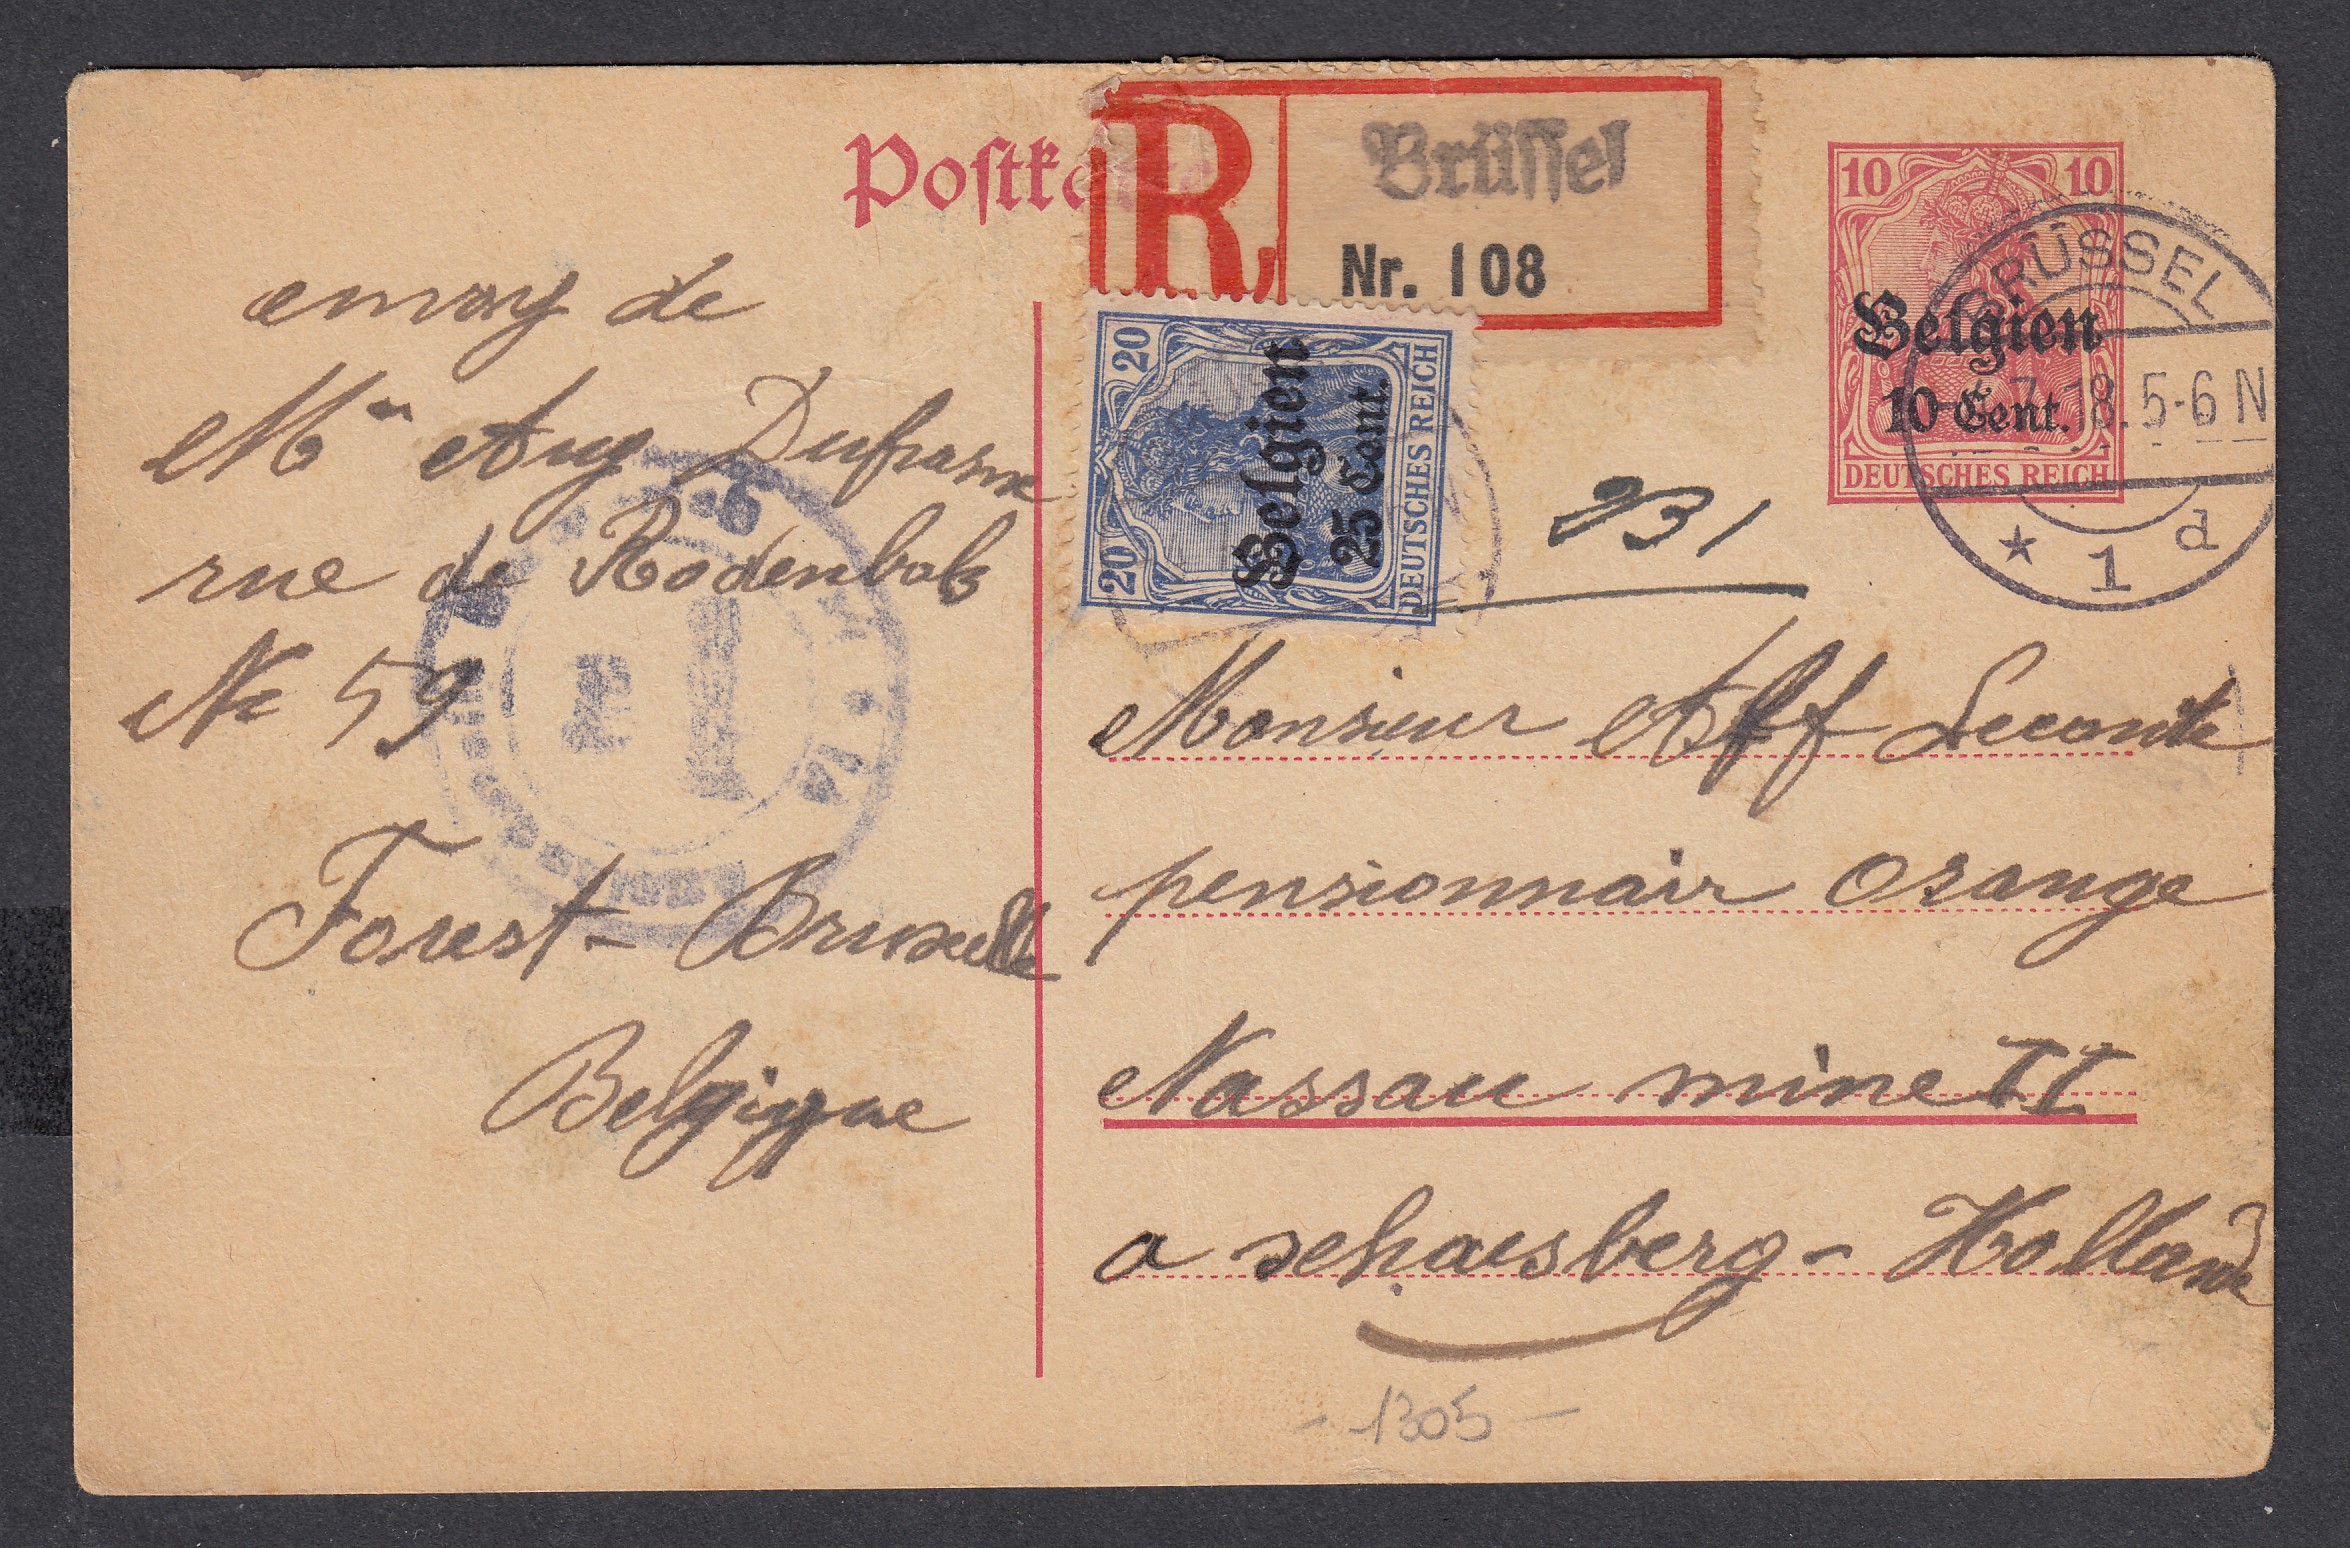 R
Brüssel
Nr. 108
10 10
Belgien
10 Cent.
DEUTSCHES REICH
BRÜSSEL
7.18.5-6 N
* 1 d
20 20
Belgien
25 Cent.
DEUTSCHES REICH
envoy de
Aug Dufrasne
rue de Rodenbak
No 59
Forest - Bruxelle
Belgique
231
Monsieur Alf Leconte
pensionnair orange
Nassau mine II
a schaesberg - Hollande
- 1305 -